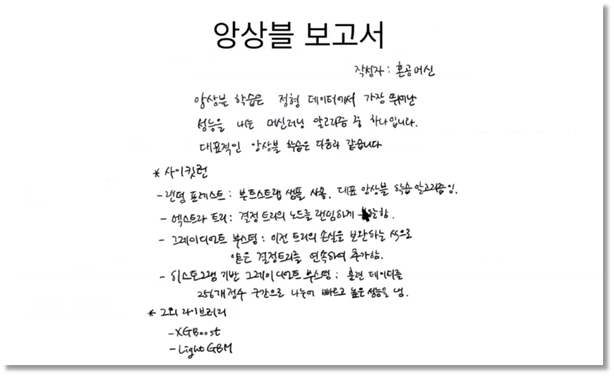 앙상블 보고서
작성자 : 혼공머신
앙상블 학습은 정형 데이터에서 가장 뛰어난
성능을 내는 머신러닝 알고리즘 중 하나입니다.
대표적인 앙상블 학습은 다음과 같습니다
* 사이킷런
- 랜덤 포레스트 : 부트스트랩 샘플 사용. 대표 앙상블 학습 알고리즘임.
- 엑스트라 트리 : 결정 트리의 노드를 랜덤하게 분할함.
- 그레이디언트 부스팅 : 이전 트리의 손실을 보완하는 식으로
얕은 결정트리를 연속하여 추가함.
- 히스토그램 기반 그레이디언트 부스팅 : 훈련 데이터를
256개 정수 구간으로 나누어 빠르고 높은 성능을 냄.
* 그외 라이브러리
- XGBoost
- LightGBM